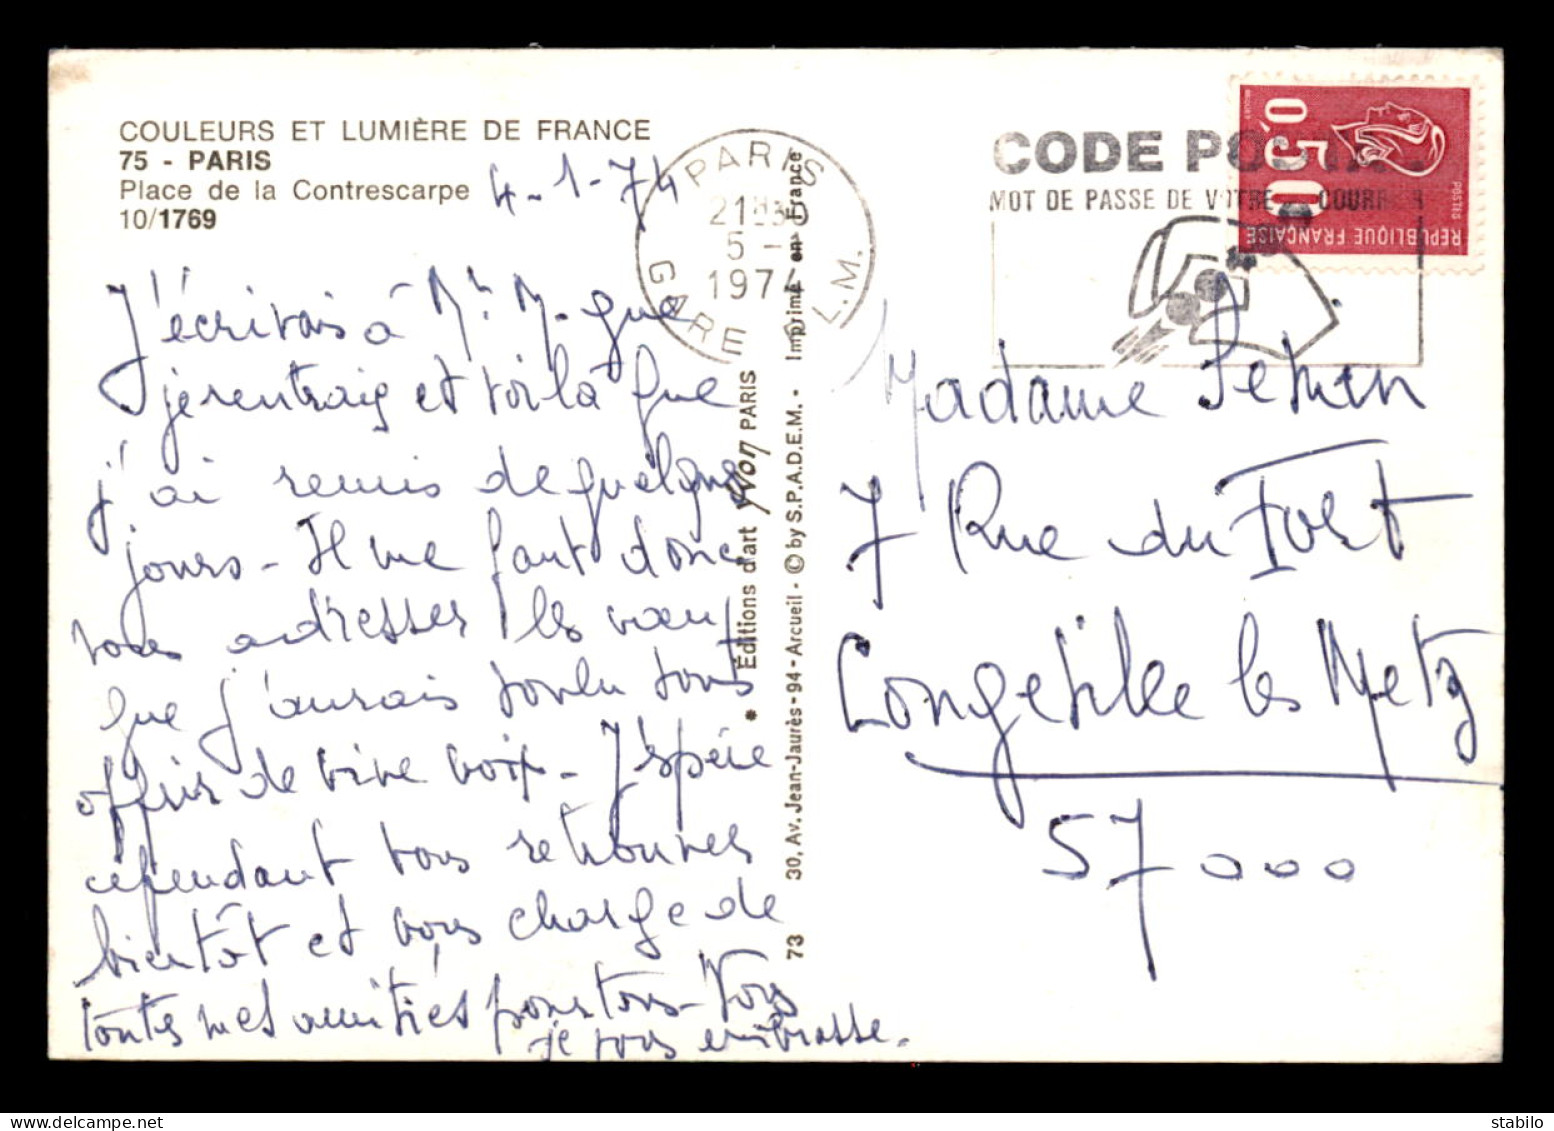 COULEURS ET LUMIÈRE DE FRANCE
75 - PARIS
Place de la Contrescarpe
10/1769
4-1-74
J'écrivais à Mr M. que
je rentrais et voilà que
j'ai remis de quelques
jours - Il me faut donc
vous adresser les voeux
que j'aurais voulu vous
offrir de vive voix - J'espère
cependant vous retrouver
bientôt et vous charge de
toutes mes amitiés pour tous - Vous
je vous embrasse.
PARIS
21H30
5 -
1974
GARE P.L.M.
CODE POSTAL
MOT DE PASSE DE VOTRE COURRIER
0,50
POSTES
REPUBLIQUE FRANÇAISE
* Éditions d'art Yvon PARIS
30, Av. Jean-Jaurès - 94 - Arcueil - © by S.P.A.D.E.M. - Imprimé en France
73
Madame
7 Rue du Fort
Longeville les Metz
57000
stabilo